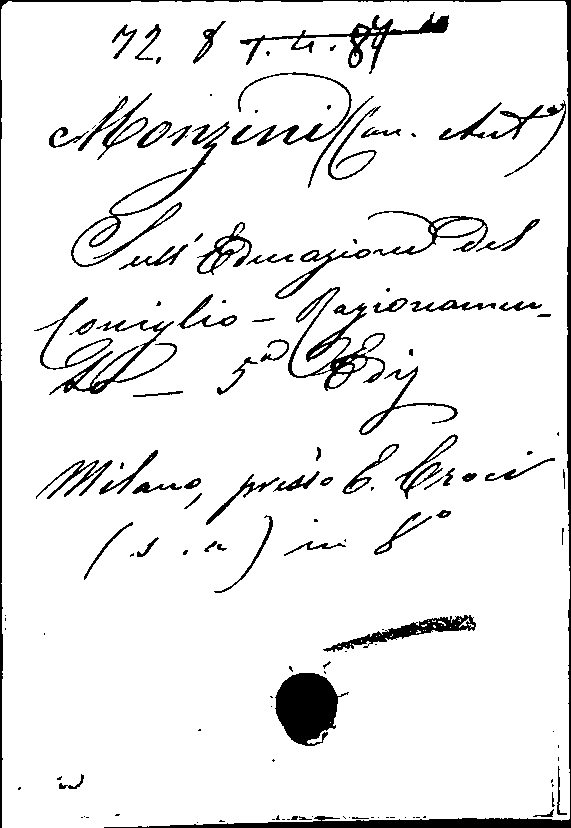 72. 8 T. 4. 84
Monzini (Can. Ant°)
Sull' Educazione del
Coniglio - Ragionamen-
to - 5ª Ediz
Milano, presso E. Croci
(s. a) in 8°